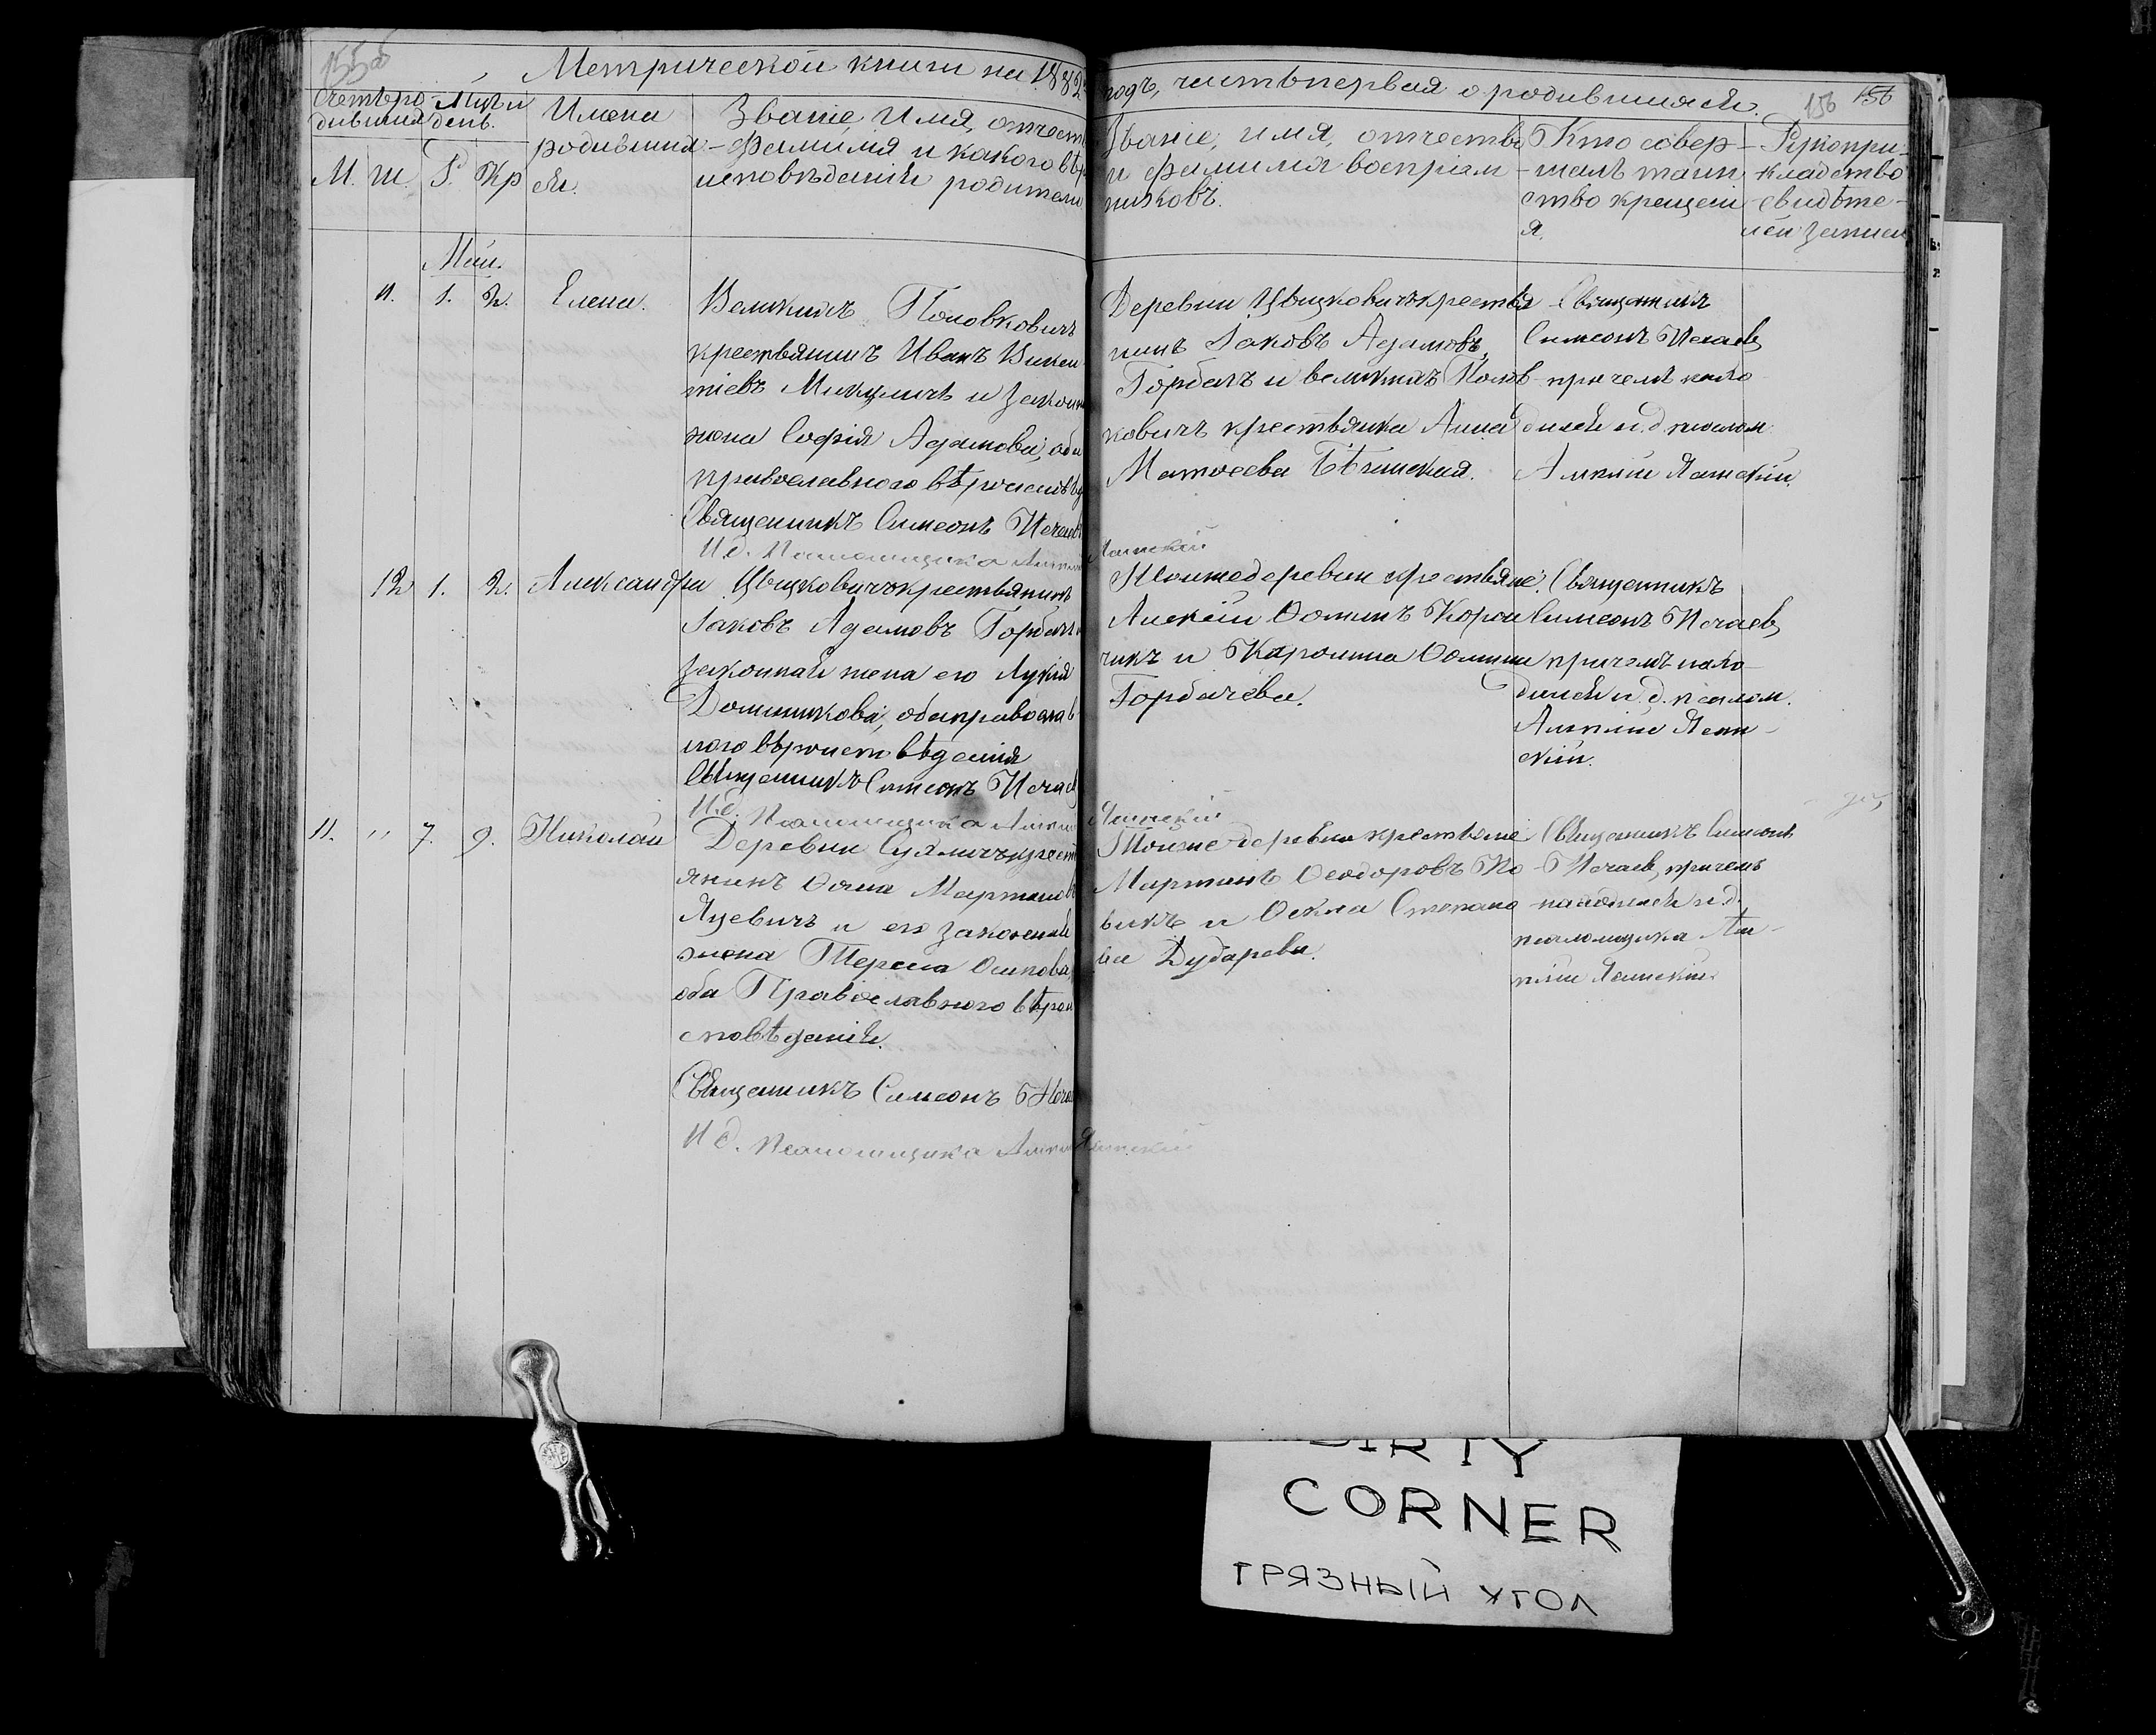 155об
Метрической книги на 1882
годъ, часть первая о родившихся.
156 156
Счетъ ро-
дившихся
Мѣс. и
день.
М. Ж. Р. Кр
Имена
родивших
ся.
Званіе, Имя, отчеств
Фамилія и какого вѣр
исповѣданія родители
Званіе, имя, отчество
и Фамилія воспріем
никовъ.
Кто совер-
шалъ таин
ство крещені
я.
Рукопри-
кладство
свидѣте-
лей записи
Май.
11. 1. 2. Елена.
Великихъ Половковичъ
крестьянинъ Иванъ Викен
тіевъ Микуличъ и законн
жена Софія Адамова, оба
православнаго вѣроисповѣд
Священникъ Симеонъ Нечаев
И.д. Псаломщика
Деревни Цвицковичъ крестья
нинъ Іаковъ Адамовъ
Горбачъ и великихъ Полов
ковичъ крестьянка Анна
Матѳеева
Священникъ
Симеонъ Нечаевъ
при чемъ нахо
дился и.д. псалом.
12 1. 2. Александра
Цвицковичъ крестьянинъ
Іаковъ Адамовъ Горбачъ и
законная жена его Лукія
Доминикова, оба православ
наго вѣроисповѣданія
Священникъ Симеонъ Нечаев
И.д. Псаломщика
Той же деревни крестьяне
Алексѣй Ѳоминъ
чикъ и Каролина Ѳомина
Горбачева.
Священникъ
Симеонъ Нечаевъ
при чемъ нахо
дился и.д. псалом.
11. " 7. 9. Николай
Деревни крест
янинъ Ѳома Мартинов
Яцевичъ и его законная
жена Тереса Осипова,
оба Православнаго вѣрои
сповѣданія.
Священникъ Симеонъ Нечаев
И.д. Псаломщика
Той же деревни крестьяне
Мартинъ Ѳеодоровъ Но
викъ и Ѳекла Степано
ва Дударева.
Священникъ Симеонъ
Нечаевъ, при чемъ
находился и.д.
псаломщика
DIRTY
CORNER
ГРЯЗНЫЙ УГОЛ